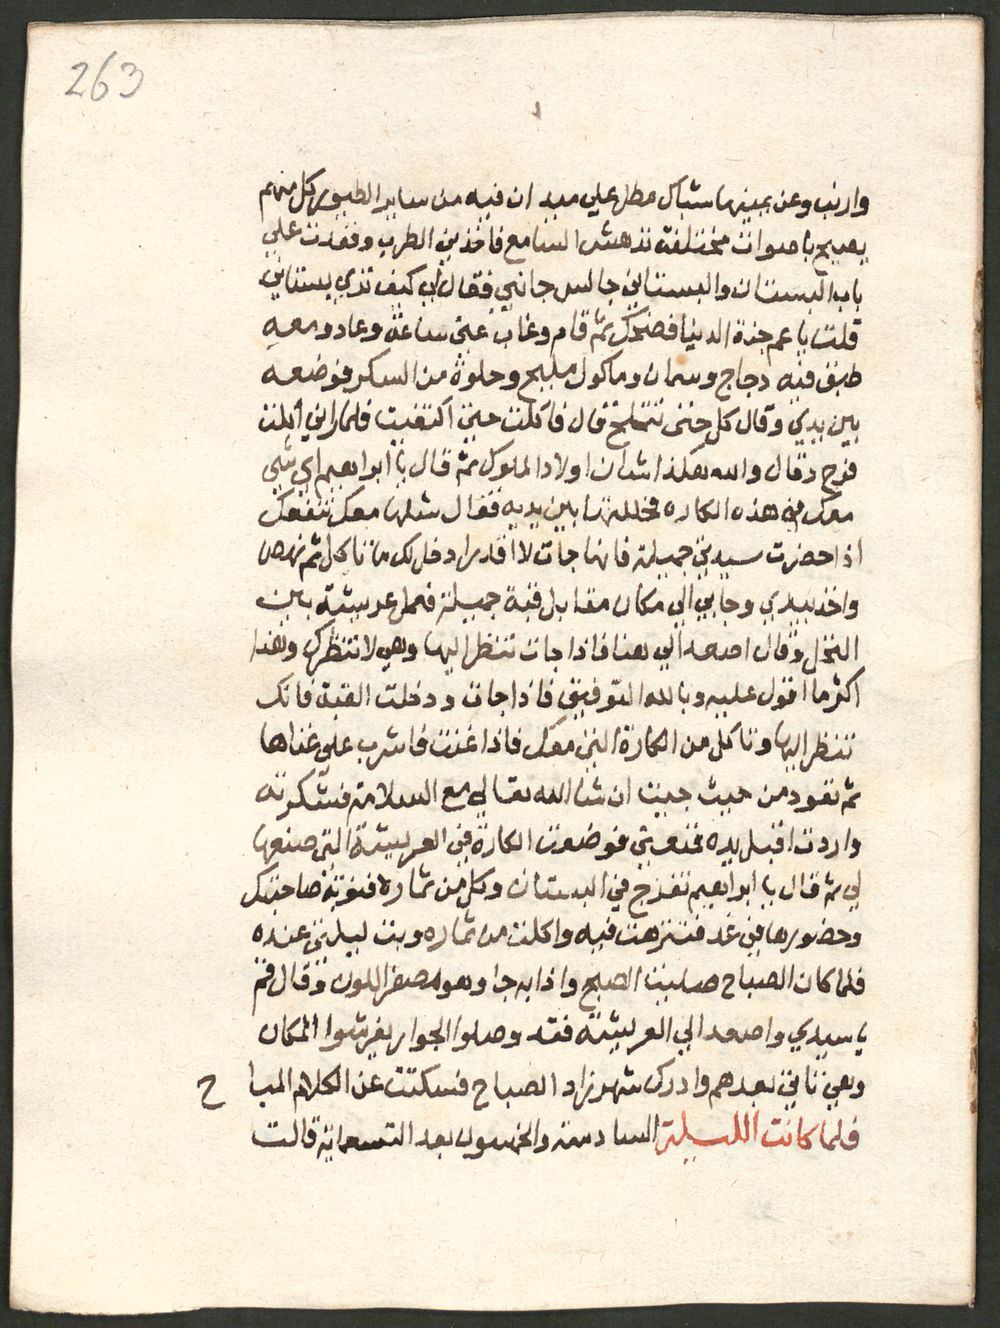 263
وارنب وعن يمينها شباك مطل علي ميدان فيه من ساير الطيور كل منهم
يصيح باصوات مختلفة تدهش السامع فاخذني الطرب وقعدت علي
باب البستان والبستاني جالس جانبي فقال لي كيف تري بستاني
قلت يا عم جنة الدنيا فضحك ثم قام وغاب عني ساعة وعاد ومعه
طبق فيه دجاج وسمان وماكول مليح وحلوة من السكر فوضعه
بين يدي وقال كل حتي قال فاكلت حتي اكتفيت فلما راني اكلت
فرح وقال والله هكذا شان اولاد الملوك ثم قال يا ابراهيم اي شي
معك في هذه الكاره فحللتها بين يديه فقال شلها معك تنفعك
اذا حضرت سيدتي جميلة فانها جات لا اقدر ادخل لك ما تاكل ثم نهض
واخذ بيدي وجا بي الي مكان مقابل قبة جميلة فعمل عريشة بين
النخل وقال اصعد الي هنا فاذا جات تنظر اليها وهي لا تنظرك وهذا
اكثر ما اقول عليه وبالله التوفيق فاذا جات ودخلت القبة فانك
تنظر اليها وتاكل من الكارة التي معك فاذا غنت فاشرب علي غناها
ثم تعود من حيث جيت ان شا الله تعالي مع السلامة فشكرته
واردت اقبل يده فمنعني فوضعت الكارة في العريشة التي صنعها
لي ثم قال يا ابراهيم تفرج في البستان وكل من ثماره فنوبة صاحبتك
وحضورها في غد فتنزهت فيه واكلت من ثماره وبت ليلتي عنده
فلما كان الصباح صليت الصبح واذا به جا وهو مصفر اللون وقال قم
يا سيدي واصعد الي العريشة فقد وصلوا الجوار يفرشوا المكان
وهي تاتي بعدهم وادرك شهرزاد الصباح فسكتت عن الكلام المباح
فلما كانت الليلة السادسة والخمسون بعد التسعماية قالت